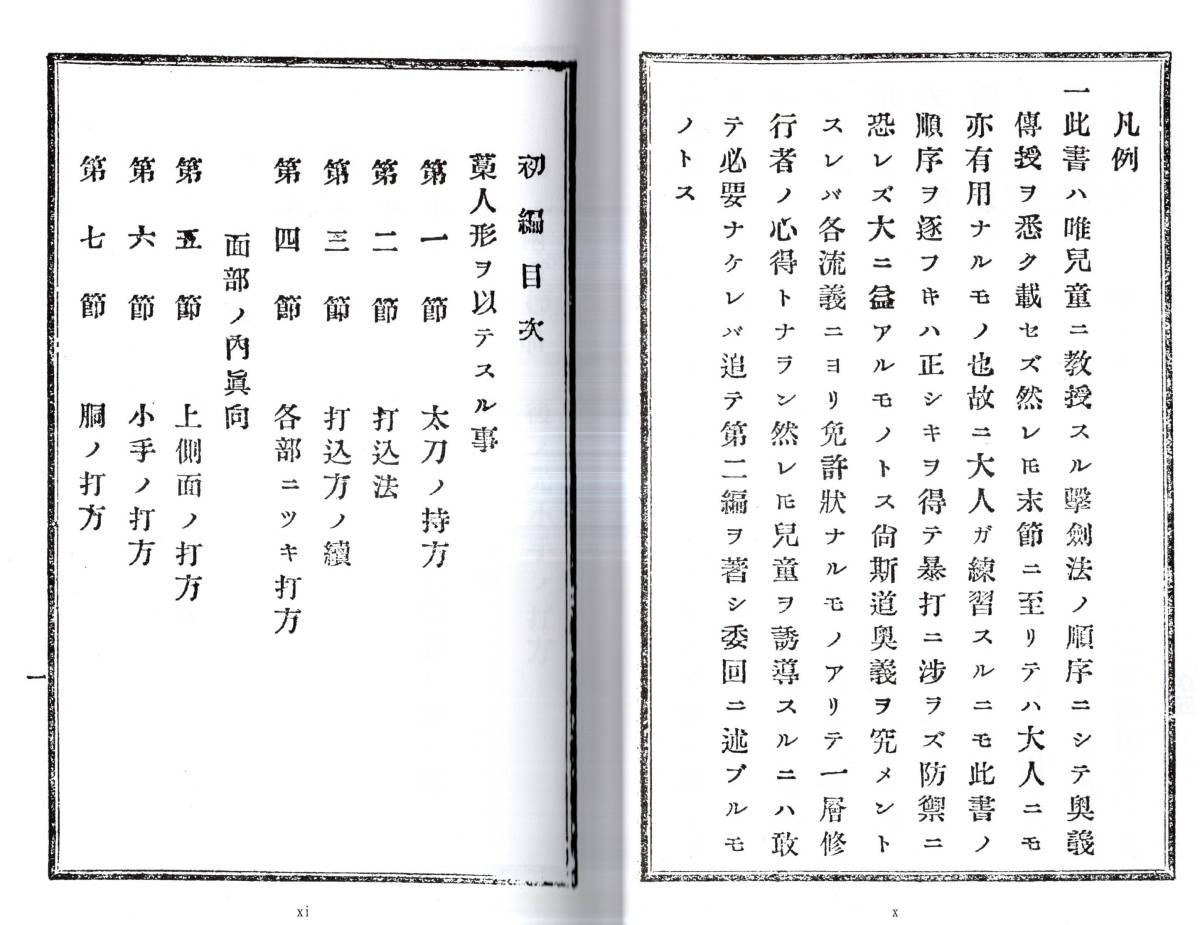 凡例
一此書ハ唯兒童ニ敎授スル擊劍法ノ順序ニシテ奧義
傳授ヲ悉ク載セズ然レ𪜈末節ニ至リテハ大人ニモ
亦有用ナルモノ也故ニ大人ガ練習スルニモ此書ノ
順序ヲ逐フキハ正シキヲ得テ暴打ニ涉ラズ防禦ニ
恐レズ大ニ益アルモノトス尙斯道奧義ヲ究メント
スレバ各流義ニヨリ免許狀ナルモノアリテ一層修
行者ノ心得トナラン然レ𪜈兒童ヲ誘導スルニハ敢
テ必要ナケレバ追テ第二編ヲ著シ委回ニ述ブルモ
ノトス
x
初編目次
藁人形ヲ以テスル事
第一節 太刀ノ持方
第二節 打込法
第三節 打込方ノ續
第四節 各部ニツキ打方
面部ノ內眞向
第五節 上側面ノ打方
第六節 小手ノ打方
第七節 胴ノ打方
一
xi